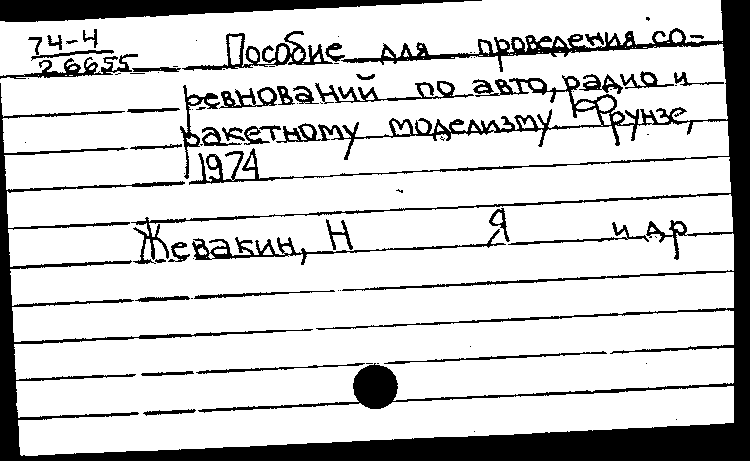 74-4
26655
Пособие для проведения со-
ревнований по авто, радио и
ракетному моделизму Фрунзе,
1974
Жевакин, Н Я и др